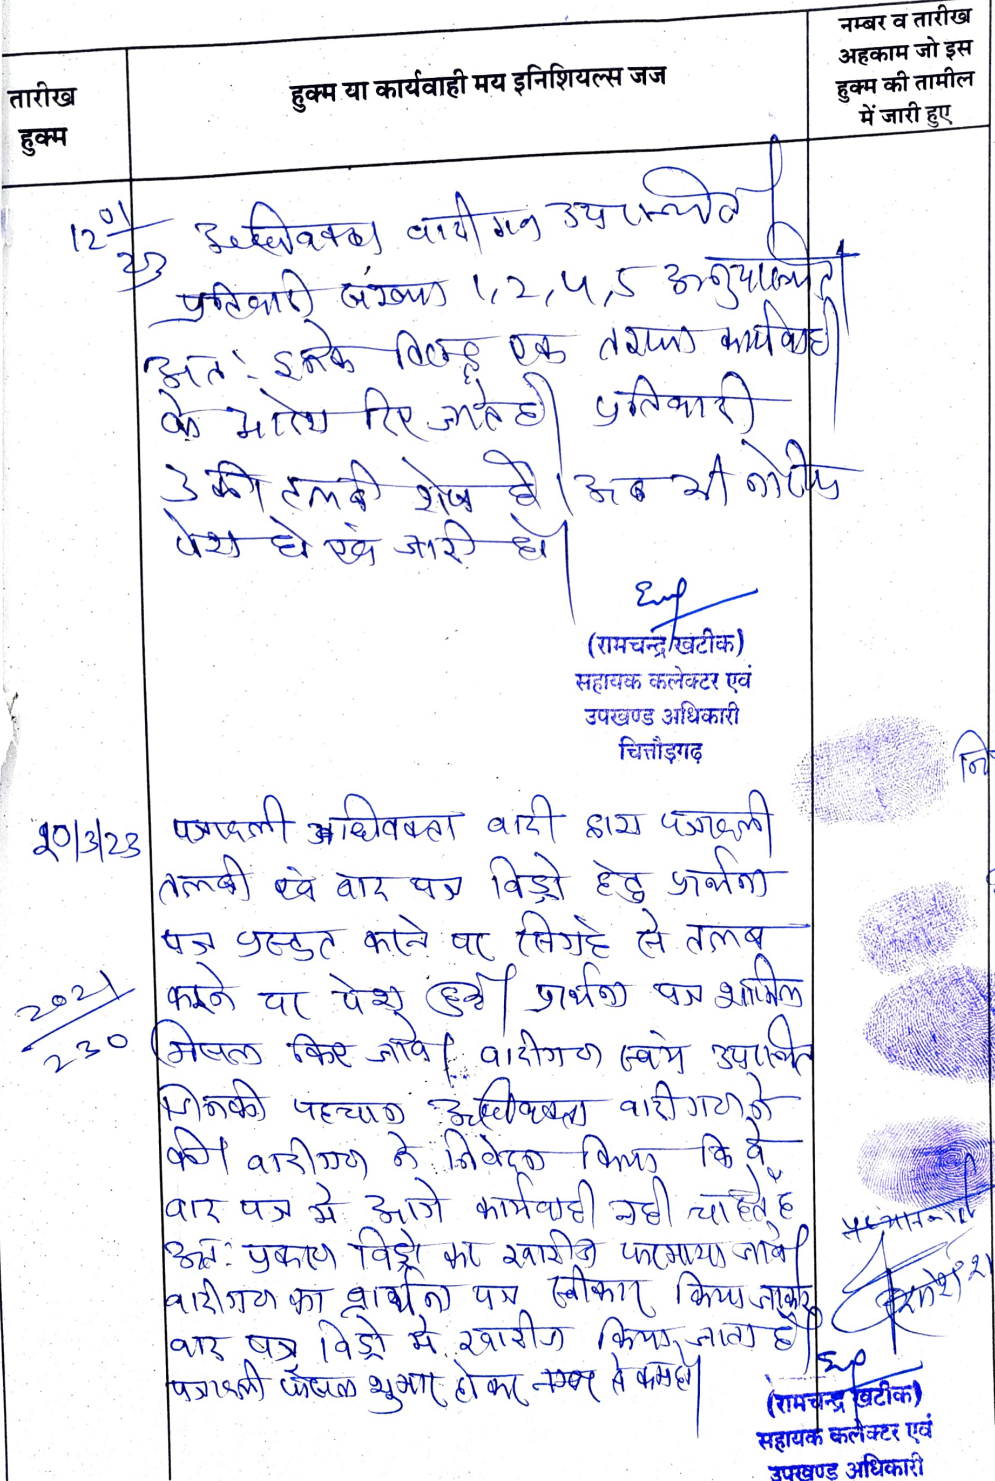 तारीख
हुक्म
हुक्म या कार्यवाही मय इनिशियल्स जज
नम्बर व तारीख
अहकाम जो इस
हुक्म की तामील
में जारी हुए
12/01/23
अधिवक्ता वादीगण उपस्थित।
प्रतिवादी संख्या 1, 2, 4, 5 अनुपस्थित।
अत: इनके विरुद्ध एक तरफा कार्यवाही
के आदेश दिए जाते है। प्रतिवादी
3 की तलबी शेष है। अब भी नोटिस
पेश हो एवं जारी हो।
(रामचन्द्र खटीक)
सहायक कलेक्टर एवं
उपखण्ड अधिकारी
चित्तौड़गढ़
20/3/23
पत्रावली अधिवक्ता वादी द्वारा पत्रावली
तलबी एवं वाद पत्र विड्रो हेतु प्रार्थना
पत्र प्रस्तुत करने पर सिगहे से तलब
करने पर पेश हुई। प्रार्थना पत्र शामिल
2021/230
मिसल किए जावे। वादीगण स्वयं उपस्थित
जिनकी पहचान अधिवक्ता वादीगण ने
की। वादीगण ने निवेदन किया कि वे
वाद पत्र मे आगे कार्यवाही नही चाहते है
अत: प्रकरण विड्रो का खारीज फरमाया जावे।
वादीगण का प्रार्थना पत्र स्वीकार किया जाकर
वाद पत्र विड्रो मे खारीज किया जाता है।
पत्रावली फैसल शुमार होकर नम्बर से कम हो।
(रामचन्द्र खटीक)
सहायक कलेक्टर एवं
उपखण्ड अधिकारी